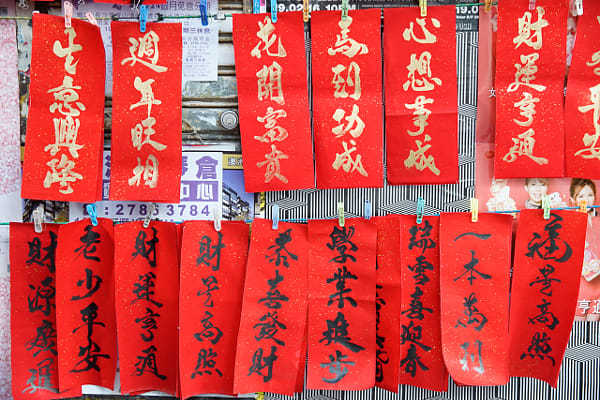 生意興隆
週年旺相
花開富貴
馬到功成
心想事成
財運亨通
平
財源廣進
老少平安
財運亨通
財星高照
恭喜發財
學業進步
瑞雪喜迎春
一本萬利
福星高照
倉
中心
2786 3784
亨通